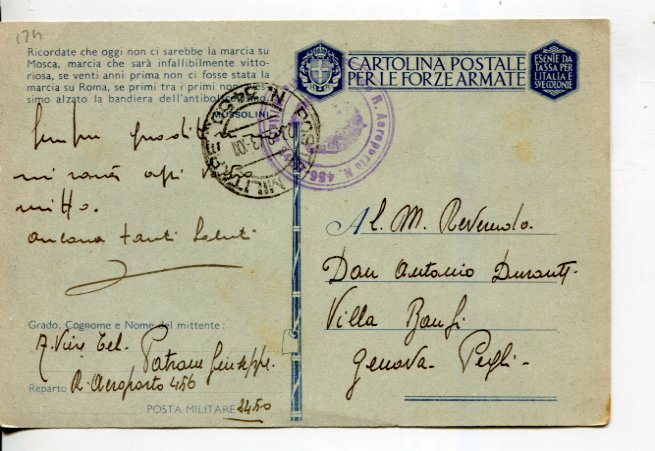 174
Ricordate che oggi non ci sarebbe la marcia su
Mosca, marcia che sarà infallibilmente vitto-
riosa, se venti anni prima non ci fosse stata la
marcia su Roma, se primi tra i primi non
simo alzato la bandiera dell'antibol
MUSSOLINI
CARTOLINA POSTALE
PER LE FORZE ARMATE
ESENTE DA
TASSA PER
L'ITALIA E
SVE COLONIE
R. Aeroporto N. 456
POSTA MILITARE N.
mi
mitto.
ancora tanti saluti
Al M. Reverendo
Don Antonio Durante
Villa Banfi
Genova - Pegli -
Grado, Cognome e Nome del mittente:
A. Vice Tel.
Patrone Giuseppe.
Reparto R. Aeroporto 456
POSTA MILITARE 3450